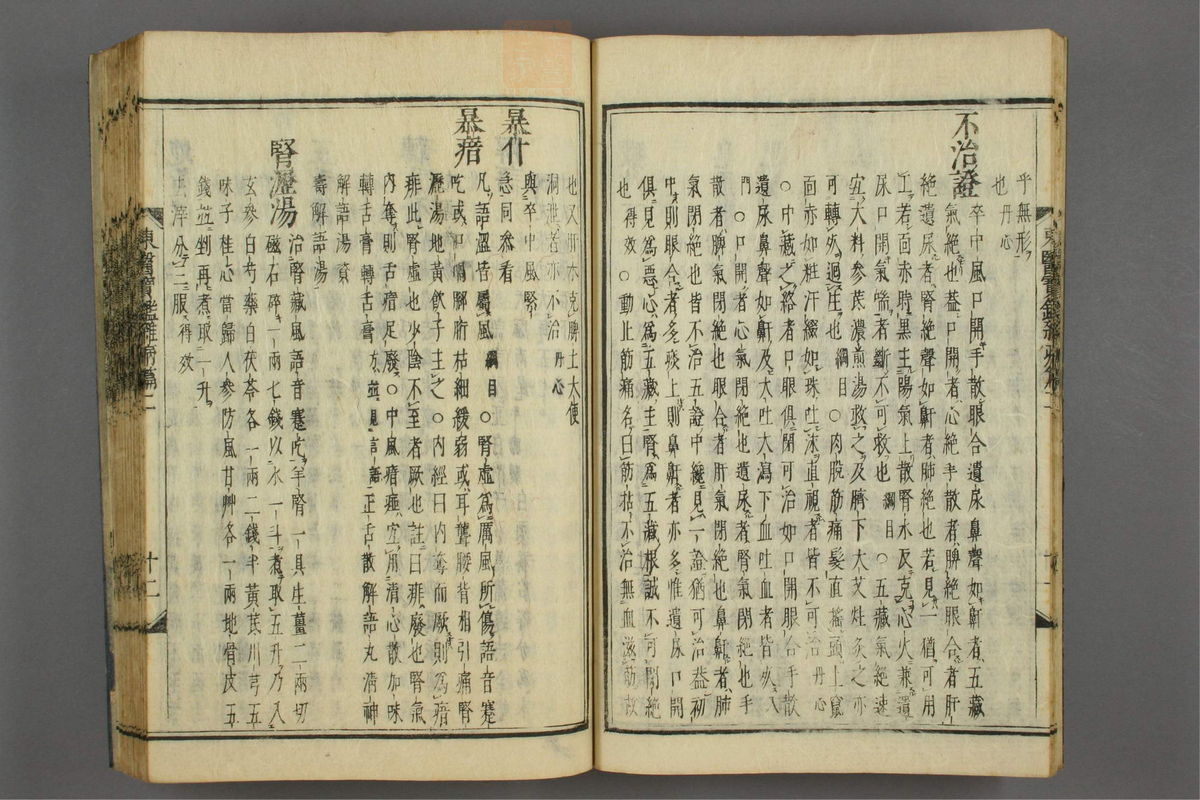 乎無形
也 丹心
不治證
卒中風口開手散眼合遺尿鼻聲如鼾者五藏
氣絶也盖口開者心絶手散者脾絶眼合者肝
絶遺尿者腎絶聲如鼾者肺絶也若見一猶可用
工若面赤時黑主陽氣上散腎水反克心火兼遺
尿口開氣喘者斷不可救也 綱目 ○五藏氣絶速
宜大料參芪濃煎湯救之及臍下大艾灶灸之亦
可轉死迴生也 綱目 ○肉脫筋痛髮直搖頭上竄
面赤如粧汗綴如珠吐沫直視者皆不可治 丹心
○中藏之絡者口眼俱閉可治如口開眼合手散
遺尿鼻聲如鼾及大吐大瀉下血吐血者皆死 入
門 ○口開者心氣閉絶也遺尿者腎氣閉絶也手
散者脾氣閉絶也眼合者肝氣閉絶也鼻鼾者肺
氣閉絶也皆不治五證中纔見一證猶可治盖初
中則眼合者多痰上則鼻鼾者亦多惟遺尿口開
俱見爲惡心爲五藏主腎爲五藏根誠不可閉絶
也 得效 ○動止筋痛名曰筋枯不治無血滋筋故
也又肝木克脾土大便
洞泄者亦不治 丹心
暴仆
與卒中風
急同參看
暴瘖
凡語澁皆屬風 綱目 ○腎虛爲厲風所傷語音蹇
吃或口喎脚胻枯細緩弱或耳聾腰背相引痛腎
瀝湯地黃飮子主之 ○內經曰內奪而厥則爲瘖
痱此腎虛也少陰不至者厥也註曰痱廢也腎氣
內奪則舌瘖足廢 ○中風瘖瘂宜用淸心散加味
轉舌膏轉舌膏 方並見言語 正舌散解語丸淸神
解語湯資
壽解語湯
腎瀝湯
治腎藏風語音蹇吃羊腎一具生薑二兩切
磁石碎一兩七錢以水一斗煮取五升乃入
玄參白芍藥白茯苓各一兩二錢半黃芪川芎五
味子桂心當歸人參防風甘艸各一兩地骨皮五
錢並剉再煮取二升
去滓分二服 得效
東醫寶鑑雜病篇二
十二